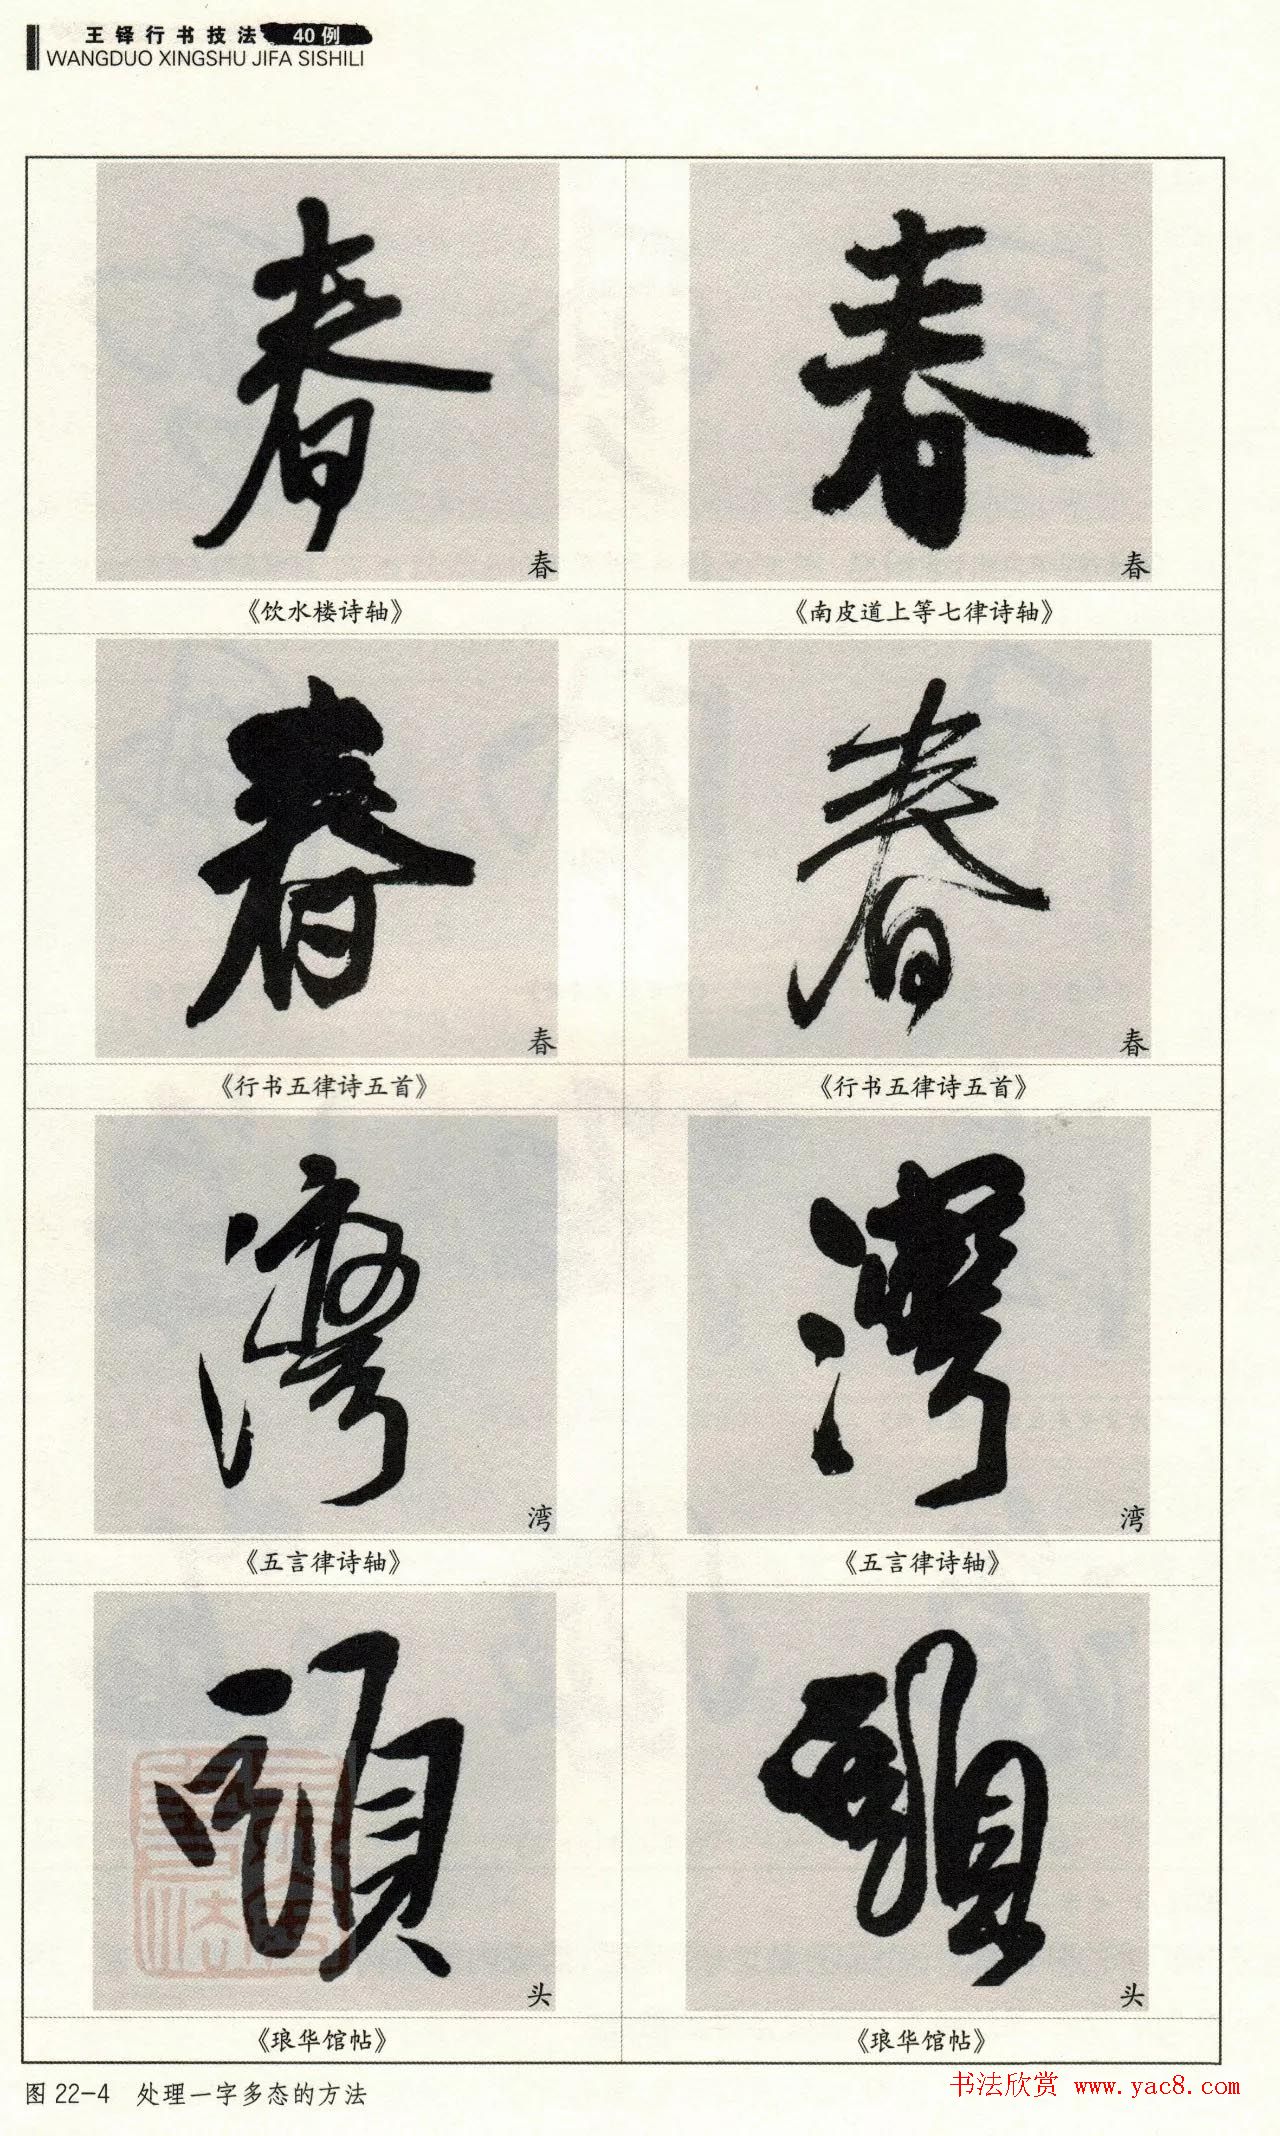 王铎行书技法 40例
WANGDUO XINGSHU JIFA SISHILI
春 春
《饮水楼诗轴》 《南皮道上等七律诗轴》
春 春
《行书五律诗五首》 《行书五律诗五首》
湾 湾
《五言律诗轴》 《五言律诗轴》
头 头
《琅华馆帖》 《琅华馆帖》
图 22-4 处理一字多态的方法
书法欣赏 www.yac8.com